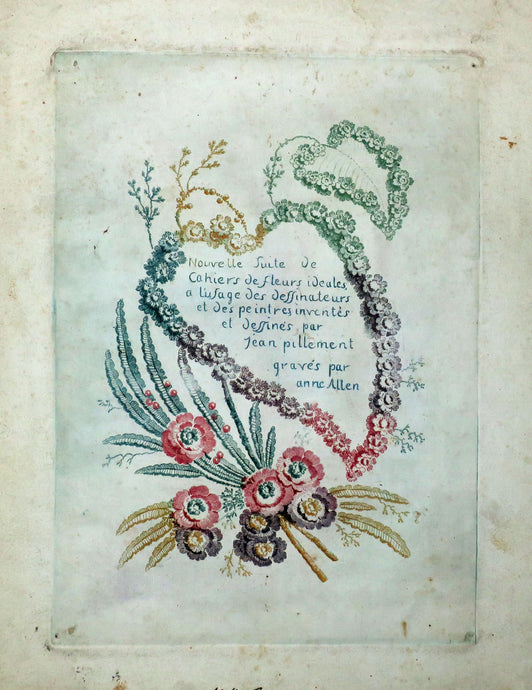 Nouvelle Suite de
Cahiers de fleurs ideales,
a l'usage des dessinateurs
et des peintres inventés
et dessinés par
jean pillement
gravés par
anne Allen